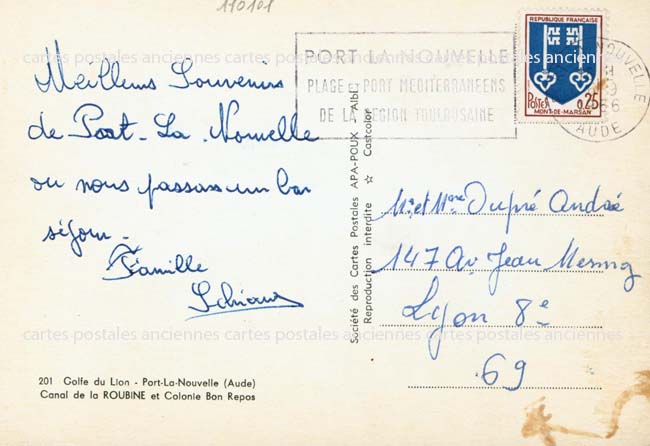 110101
cartes postales anciennes cartes postales anciennes cartes postales anciennes
PORT LA NOUVELLE
PLAGE - PORT MEDITERRANEENS
DE LA REGION TOULOUSAINE
REPUBLIQUE FRANÇAISE
POSTES
0,25
MONT-DE-MARSAN
NOUVELLE
AUDE
Meilleurs Souvenirs
de Port-La-Nouvelle
ou nous passons un bon
séjour.
Famille
Société des Cartes Postales APA-POUX - Albi
Reproduction interdite ☆ Castcolor
Mr et Mme Dupré André
147 Av. Jean Mermoz
Lyon 8e
69
cartes postales anciennes cartes postales anciennes cartes postales anciennes
201 Golfe du Lion - Port-La-Nouvelle (Aude)
Canal de la ROUBINE et Colonie Bon Repos